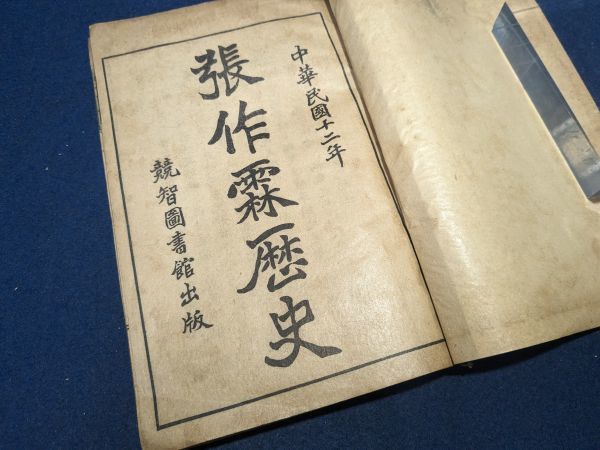 中華民國十二年
張作霖歷史
競智圖書館出版